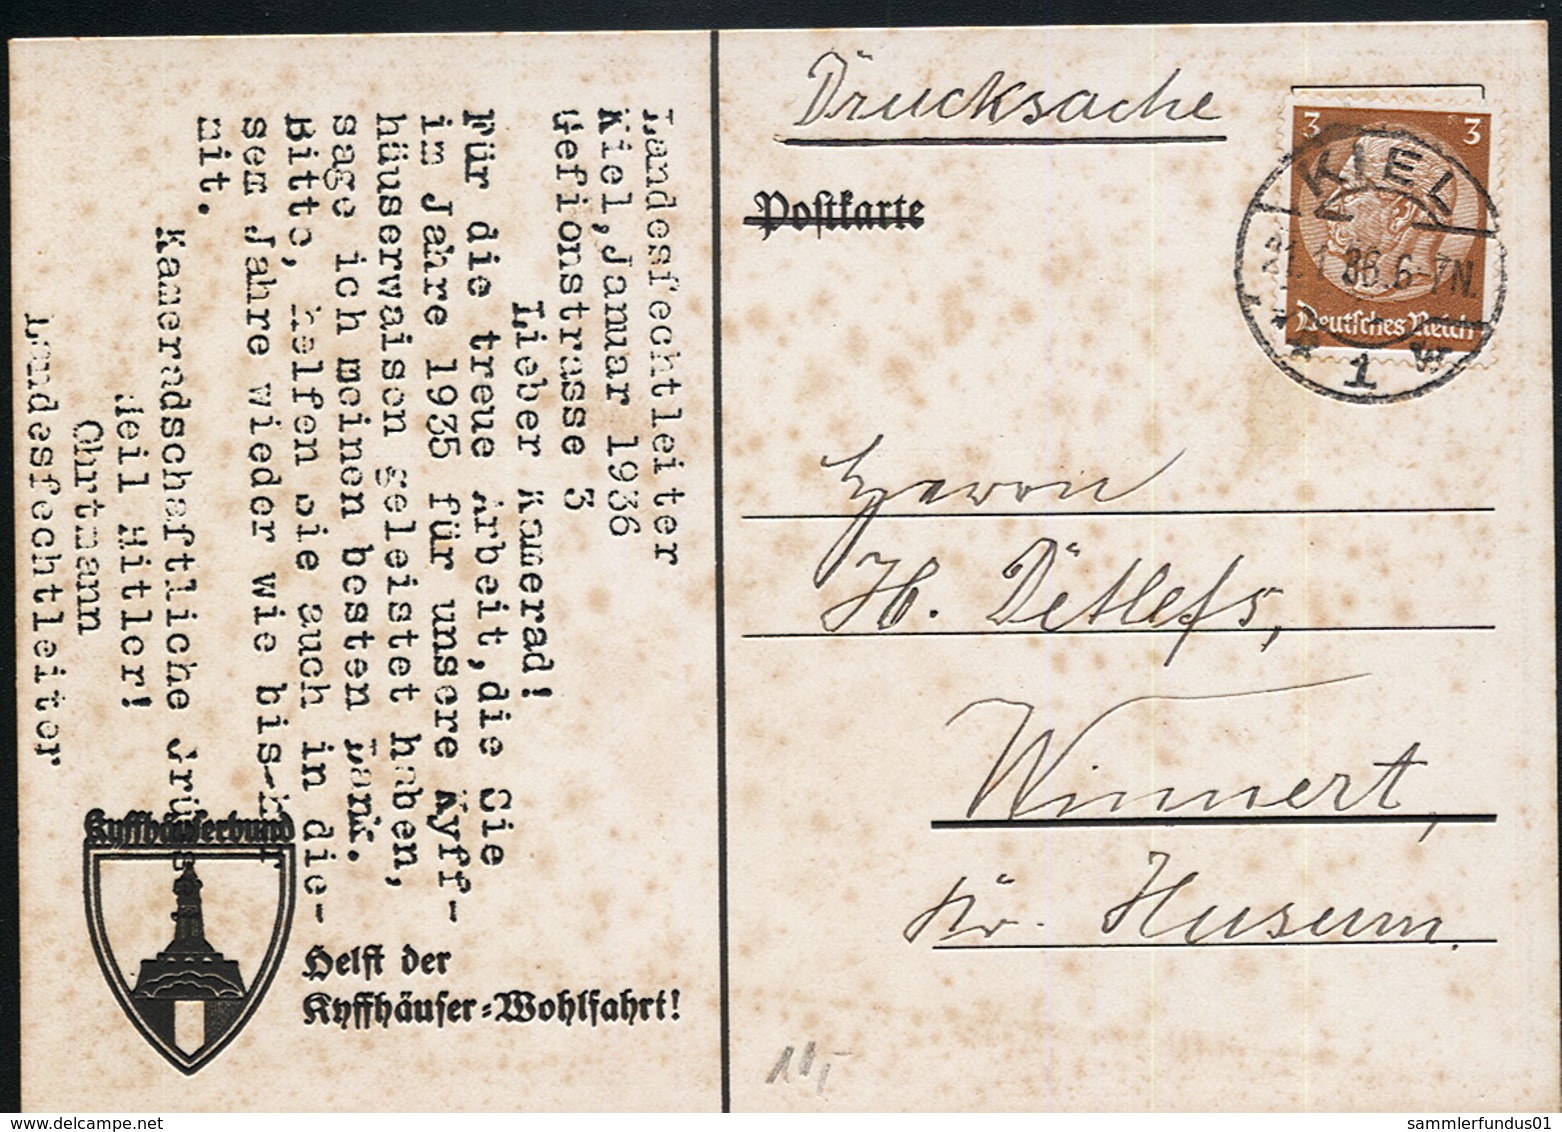 Landesfechtleiter
Kiel, Januar 1936
Gefionstrasse 3
Lieber Kamerad!
Für die treue Arbeit, die Sie
im Jahre 1935 für unsere Kyff-
häuserwaisen geleistet haben,
sage ich meinen besten Dank.
Bitte, helfen Sie auch in die-
sem Jahre wieder wie bis-her
mit.
Kameradschaftliche Grüsse
Heil Hitler!
Ohrtmann
Landesfechtleiter
Kyffhäuserbund
Helft der
Kyffhäuser-Wohlfahrt!
Drucksache
Postkarte
3 3
Deutsches Reich
KIEL
1.36.6-7N.
1
Herrn
H. Detlefs,
Winnert,
Kr. Husum.
10,-
www.delcampe.net
sammlerfundus01